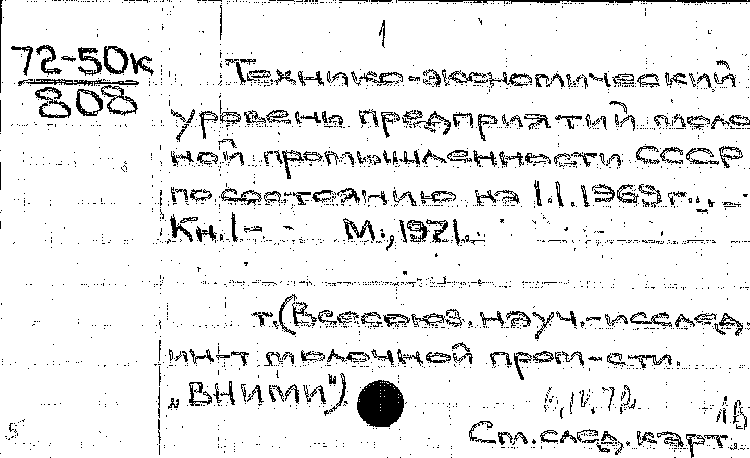 1
72-50к
808
Технико-экономический
уровень предприятий моло
ной промышленности СССР
по состоянию на 1.1.1969 г. . –
Кн. 1– - М., 1971.
т. (Всесоюз. науч.-исслед.
ин-т молочной пром-сти.
„ВНИМИ")
См. след. карт.
5